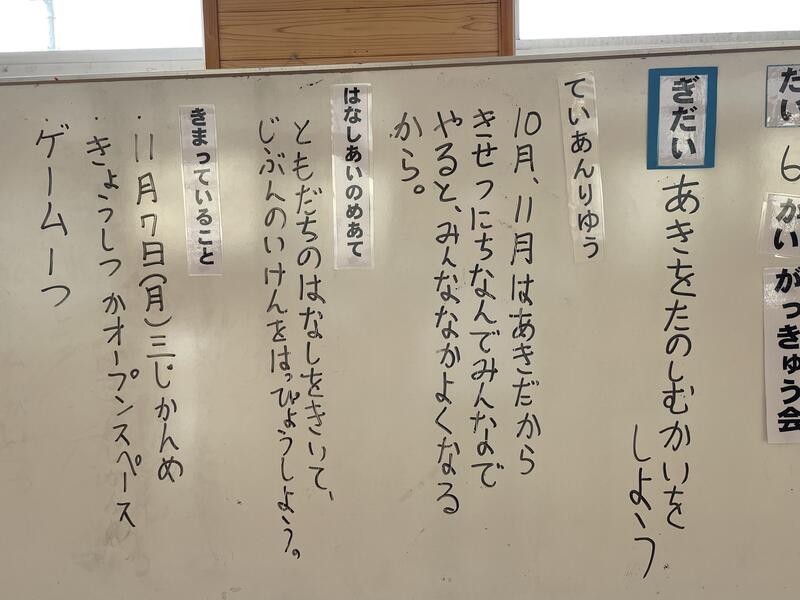 だい6かいがっきゅう会
ぎだい
あきをたのしむかいを
しよう
ていあんりゆう
10月、11月はあきだから
きせつにちなんでみんなで
やると、みんななかよくなる
から。
はなしあいのめあて
ともだちのはなしをきいて、
じぶんのいけんをはっぴょうしよう。
きまっていること
・11月7日(月)三じかんめ
・きょうしつかオープンスペース
・ゲーム一つ